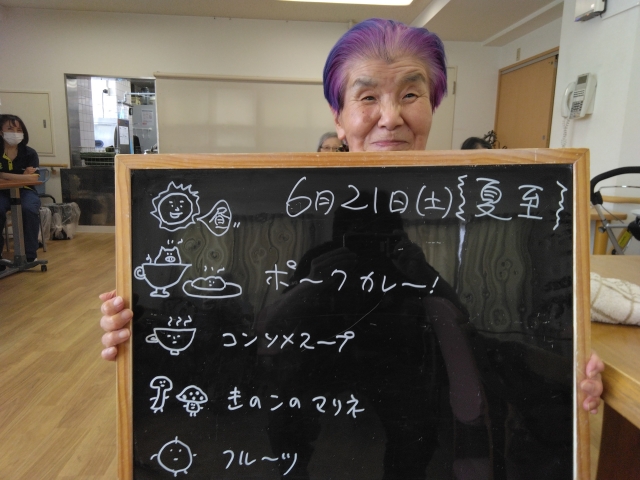 6月21日(土){夏至}
昼
ポークカレー!
コンソメスープ
きのこのマリネ
フルーツ